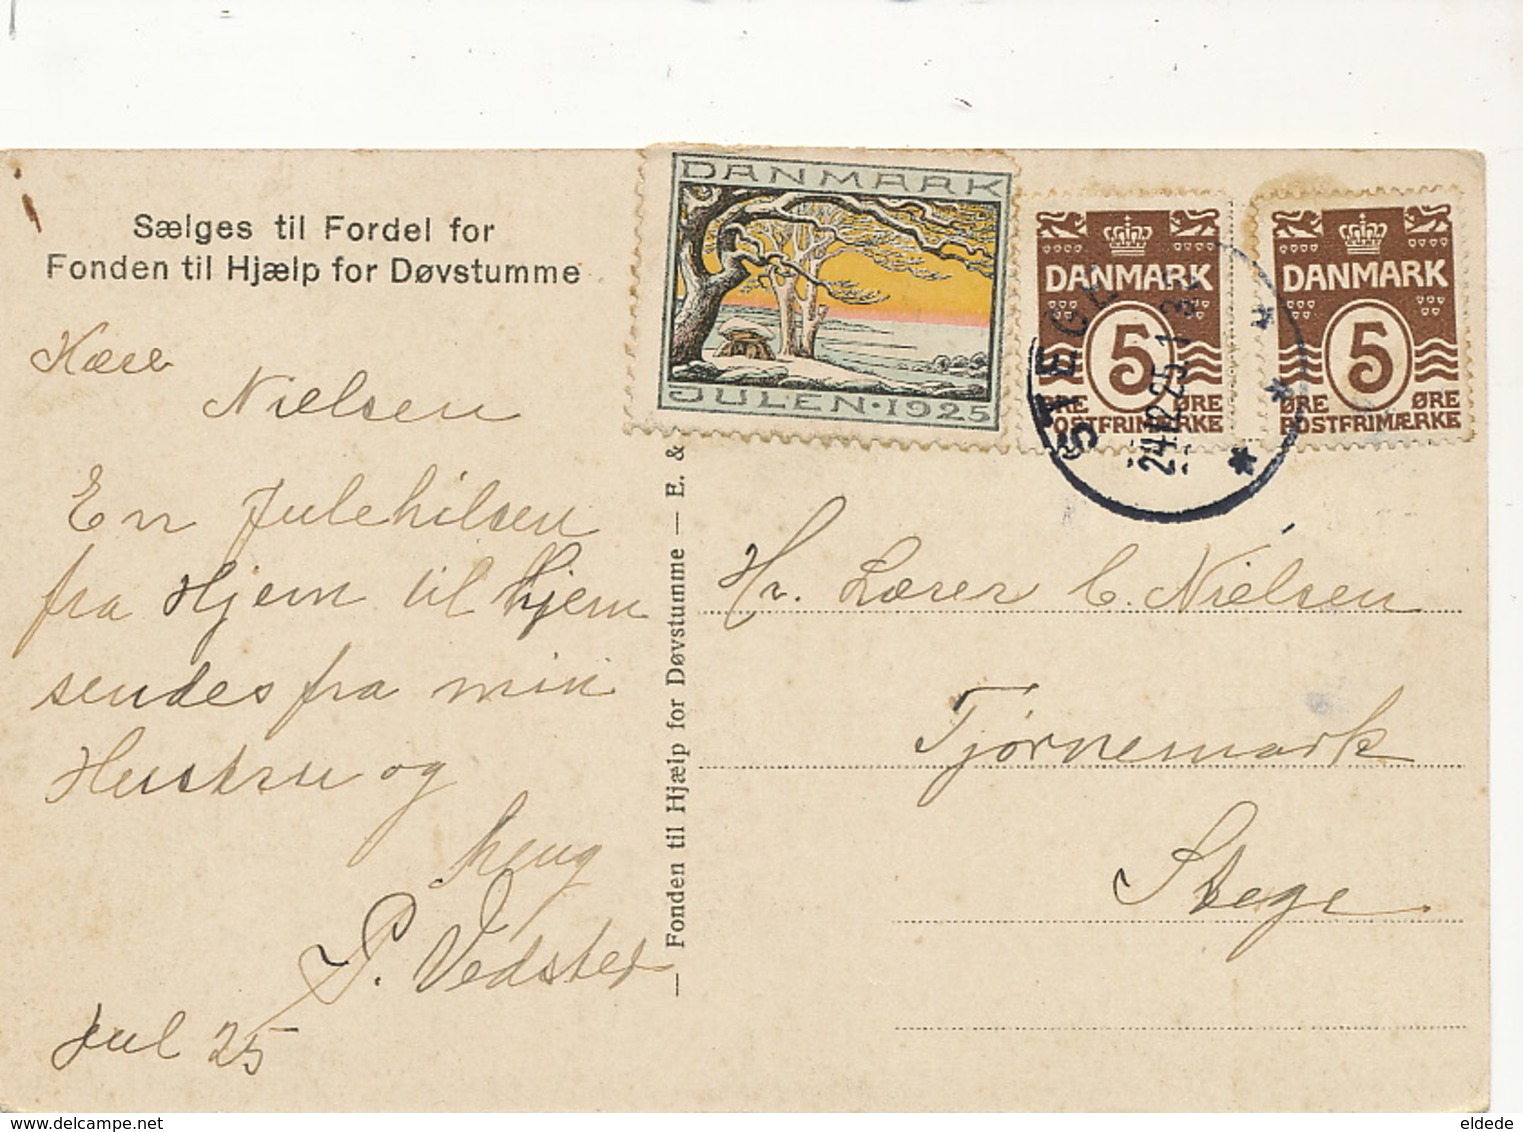 Sælges til Fordel for
Fonden til Hjælp for Døvstumme
Kære
Nielsen
En Julehilsen
fra Hjem til Hjem
sendes fra min
Hustru og
mig
P. Vedsted
Jul 25
— Fonden til Hjælp for Døvstumme — E. &
DANMARK
JULEN·1925
DANMARK
5
ØRE ØRE
POSTFRIMÆRKE
DANMARK
5
ØRE ØRE
POSTFRIMÆRKE
STEGE
24.12.25.1
Hr. Lærer C. Nielsen
Tjørnemark
Stege.
www.delcampe.net
eldede